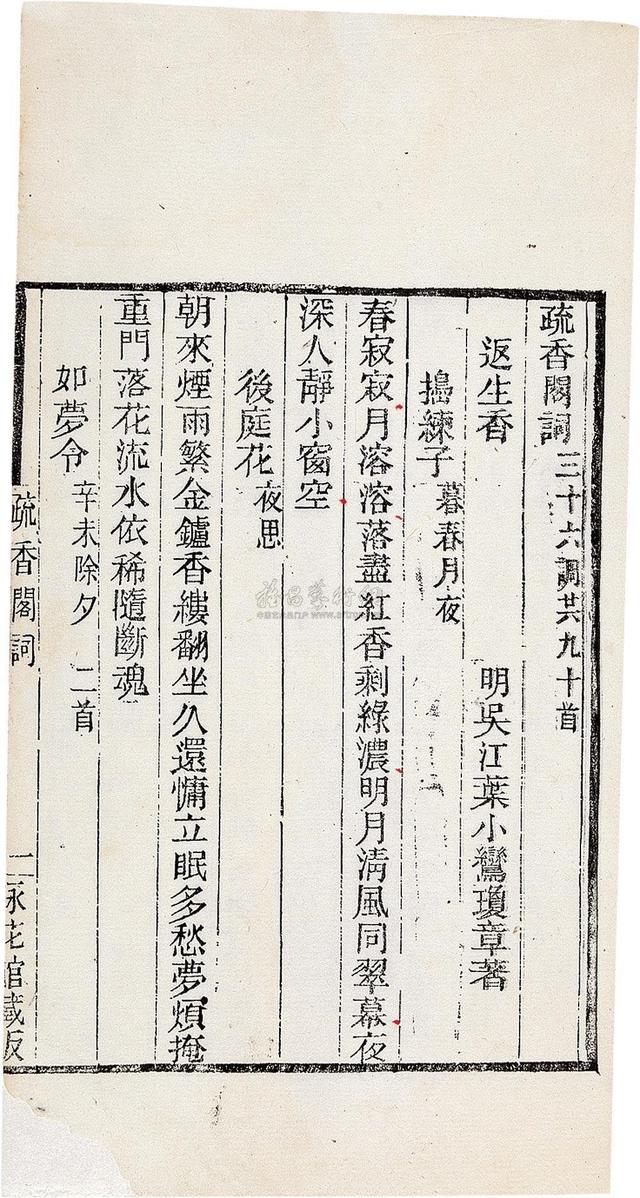 疏香閣詞三十六調共九十首
返生香 明吳江葉小鸞瓊章著
搗練子暮春月夜
春寂寂月溶溶落盡紅香剩綠濃明月清風同翠幕夜
深人靜小窗空
後庭花夜思
朝來煙雨繁金鑪香縷翻坐久還慵立眠多愁夢煩掩
重門落花流水依稀隨斷魂
如夢令辛未除夕 二首
疏香閣詞 藏板